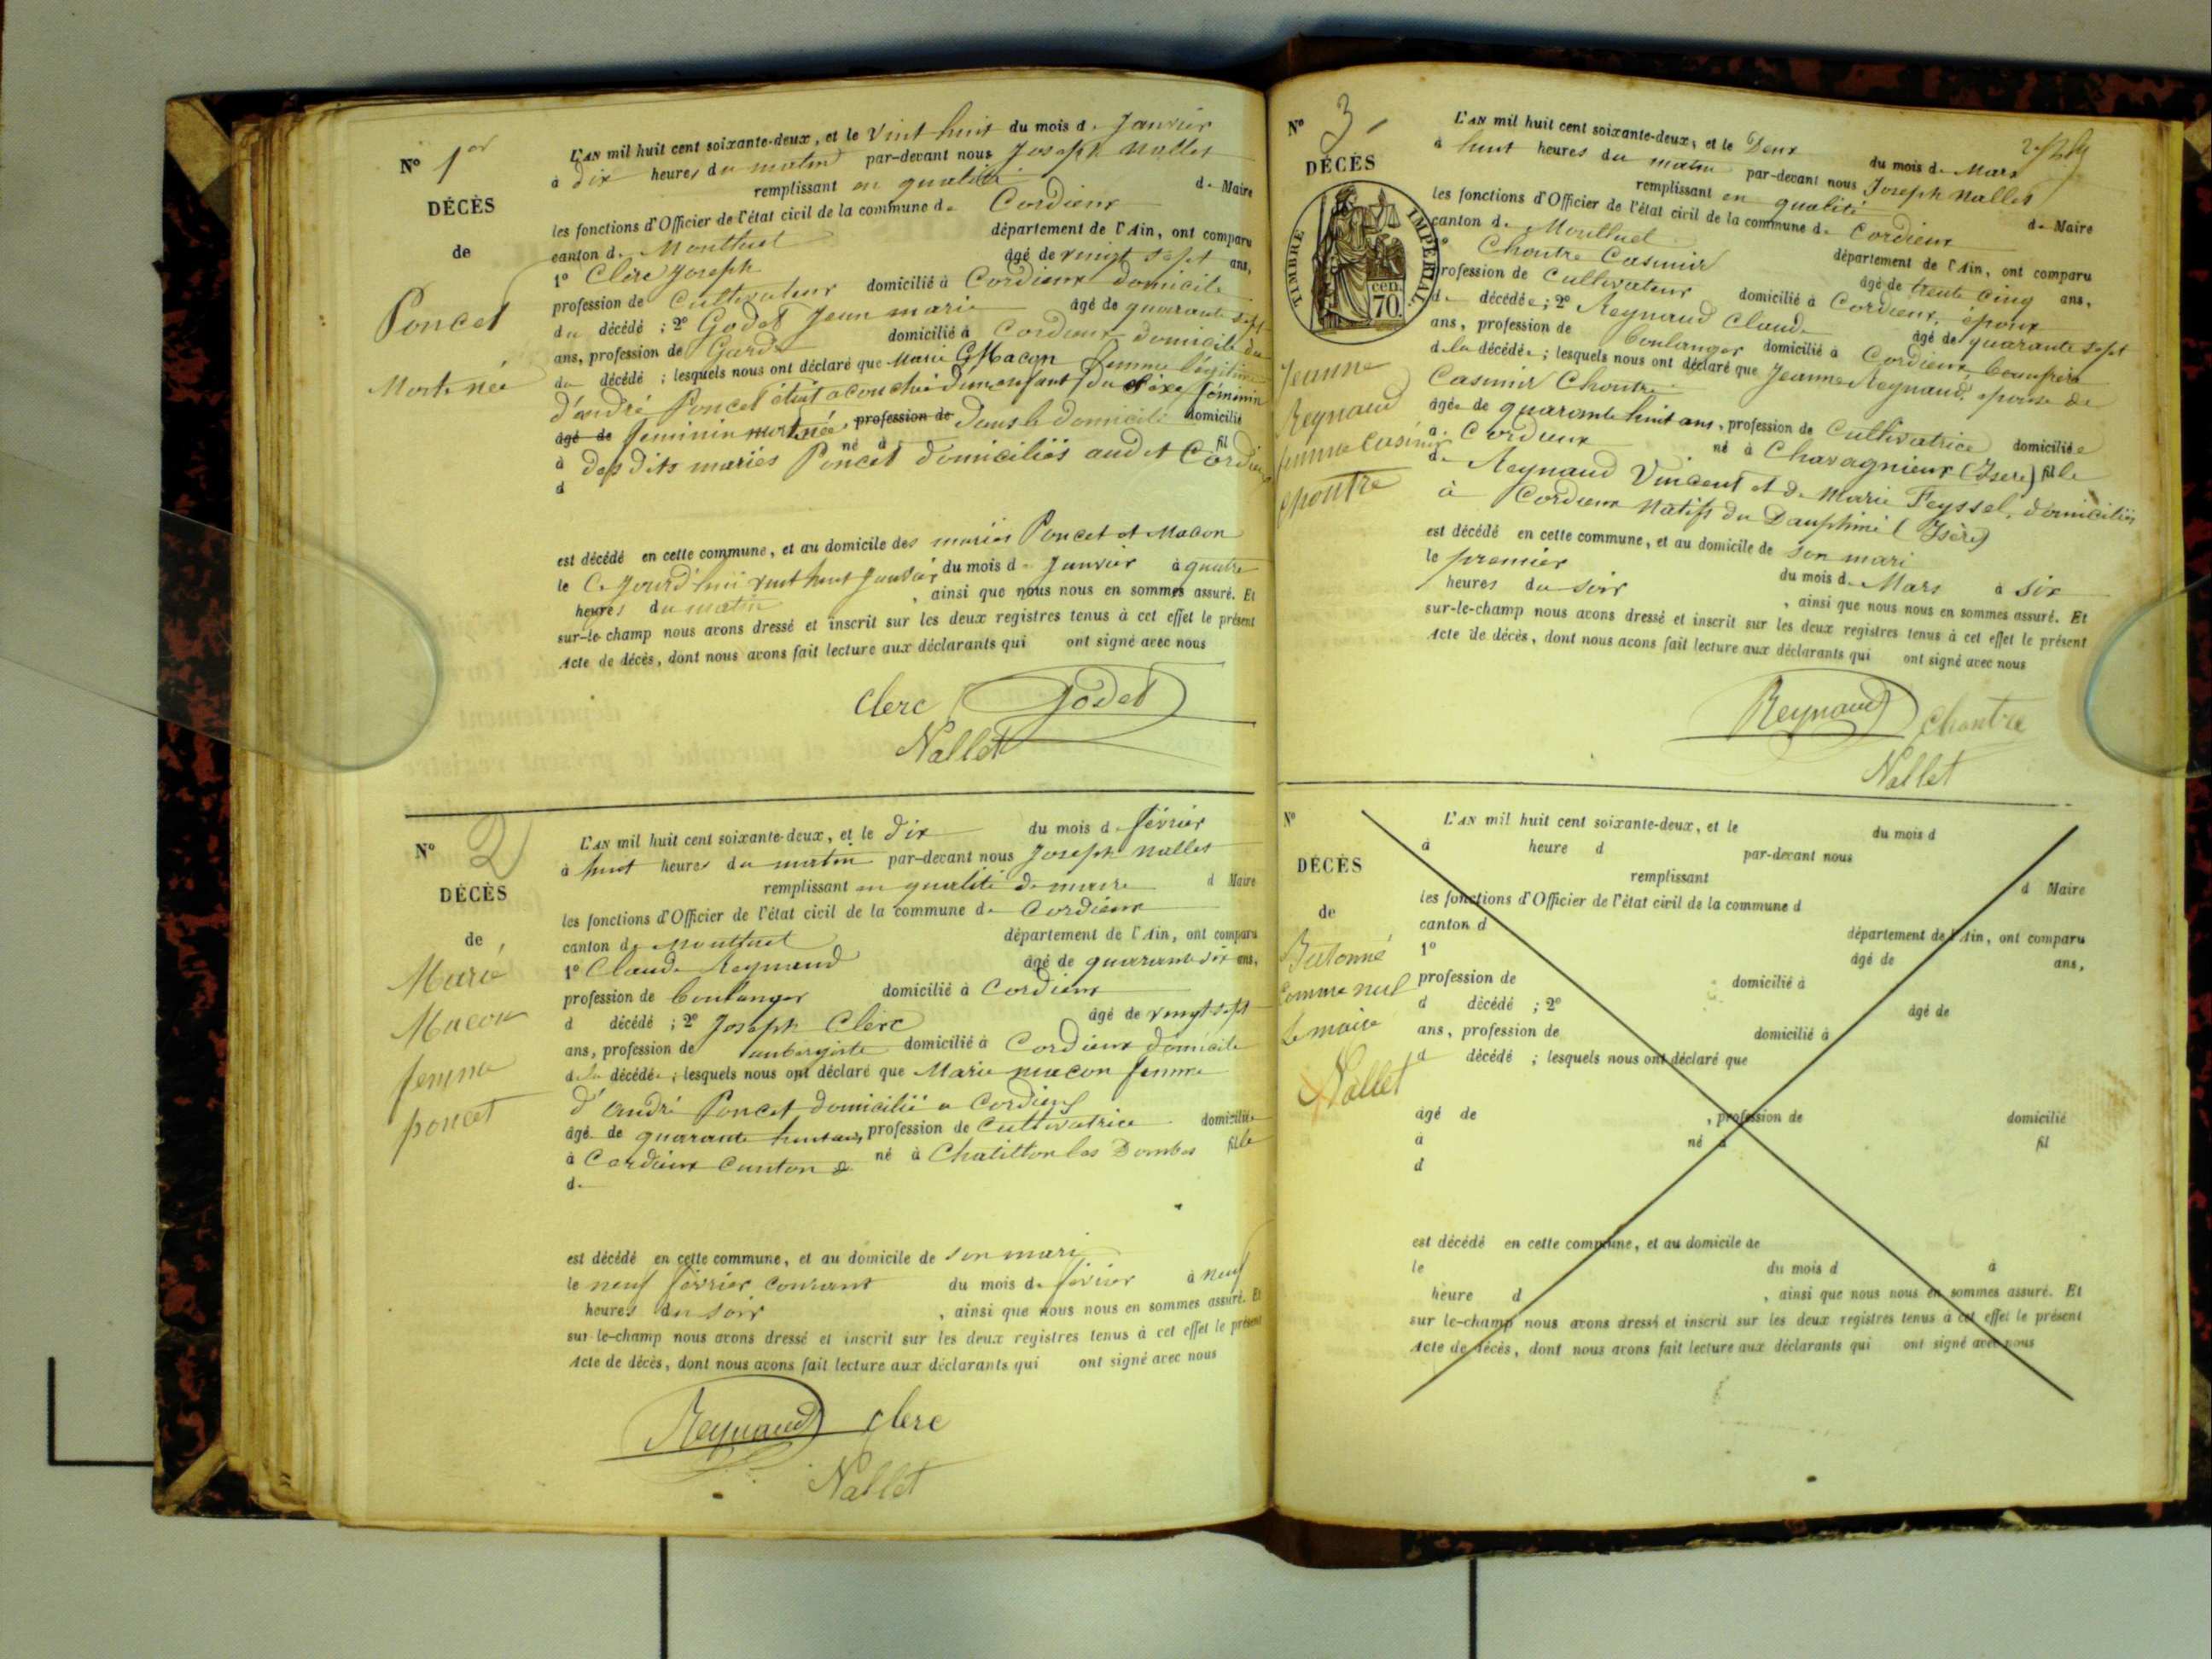 N° 1er
DÉCÈS
de
Poncet
Mort-née
L'AN mil huit cent soixante-deux, et le Vint huit du mois de Janvier
à dix heures du matin par-devant nous Joseph Nallet
remplissant en qualité de Maire
les fonctions d'Officier de l'état civil de la commune de Cordieux
canton de Montluel département de l'Ain, ont comparu
1° Clerc Joseph âgé de vingt sept ans,
profession de Cultivateur domicilié à Cordieux domicile
du décédé ; 2° Godet Jean marie âgé de quarante sept
ans, profession de Garde domicilié à Cordieux domicile du
du décédé ; lesquels nous ont déclaré que Marie Macon femme légitime
d'andré Poncet était acouchée d'un enfant du sexe féminin
âgé de feminin mort née, profession de dans le domicile domicilié
à des dits mariés Poncet né à domiciliés audit Cordieux fil
d
est décédé en cette commune, et au domicile des mariés Poncet et Macon
le Ce jourd'hui vint huit Janvier du mois de Janvier à quatre
heures du matin , ainsi que nous nous en sommes assuré. Et
sur-le-champ nous avons dressé et inscrit sur les deux registres tenus à cet effet le présent
Acte de décès, dont nous avons fait lecture aux déclarants qui ont signé avec nous
Clerc Godet
Nallet
N° 2
DÉCÈS
de
Marie
Macon
femme
poncet
L'AN mil huit cent soixante-deux, et le dix du mois de février
à huit heures du matin par-devant nous Joseph Nallet
remplissant en qualité de maire d Maire
les fonctions d'Officier de l'état civil de la commune de Cordieux
canton de Montluel département de l'Ain, ont comparu
1° Claude Reynaud âgé de quarante six ans,
profession de boulanger domicilié à Cordieux
d décédé ; 2° Joseph Clerc âgé de vingt sept
ans, profession de aubergiste domicilié à Cordieux domicile
de la décédée ; lesquels nous ont déclaré que Marie macon femme
d'andré Poncet domicilié a Cordieux
âgé de quarante huit ans, profession de Cultivatrice domiciliée
à Cordieux Canton né à Chatillon les Dombes fille
de
est décédé en cette commune, et au domicile de son mari
le neuf février courant du mois de février à neuf
heures du soir , ainsi que nous nous en sommes assuré. Et
sur le-champ nous avons dressé et inscrit sur les deux registres tenus à cet effet le présent
Acte de décès, dont nous avons fait lecture aux déclarants qui ont signé avec nous
Reynaud Clerc
Nallet
N° 3
DÉCÈS
TIMBRE IMPÉRIAL
70 cen.
Jeanne
Reynaud
femme Casimir
Choutre
L'AN mil huit cent soixante-deux, et le Deux du mois de Mars
à huit heures du matin par-devant nous Joseph Nallet
remplissant en qualité de Maire
les fonctions d'Officier de l'état civil de la commune de Cordieux
canton de Montluel département de l'Ain, ont comparu
Choutre Casimir âgé de trente cinq ans,
profession de Cultivateur domicilié à Cordieux, époux
de décédée ; 2° Reynaud Claude âgé de quarante sept
ans, profession de boulanger domicilié à Cordieux beaufrère
de la décédée ; lesquels nous ont déclaré que Jeanne Reynaud, épouse de
Casimir Choutre
âgée de quarante huit ans, profession de Cultivatrice domiciliée
a Cordieux né à Chavagnieux (Isère) fille
de Reynaud Vincent et de Marie Feyssel, domiciliés
à Cordieux Natifs du Dauphiné (Isère)
est décédé en cette commune, et au domicile de son mari
le premier du mois de Mars à six
heures du soir , ainsi que nous nous en sommes assuré. Et
sur-le-champ nous avons dressé et inscrit sur les deux registres tenus à cet effet le présent
Acte de décès, dont nous avons fait lecture aux déclarants qui ont signé avec nous
Reynaud Choutre
Nallet
N°
DÉCÈS
de
Batonné
Comme nul
Le maire
Nallet
L'AN mil huit cent soixante-deux, et le du mois d
à heure d par-devant nous
remplissant d Maire
les fonctions d'Officier de l'état civil de la commune d
canton d département de l'Ain, ont comparu
1° âgé de ans,
profession de domicilié à
d décédé ; 2° âgé de
ans, profession de domicilié à
d décédé ; lesquels nous ont déclaré que
âgé de , profession de domicilié
à né à fil
d
est décédé en cette commune, et au domicile de
le du mois d à
heure d , ainsi que nous nous en sommes assuré. Et
sur le-champ nous avons dressé et inscrit sur les deux registres tenus à cet effet le présent
Acte de décès, dont nous avons fait lecture aux déclarants qui ont signé avec nous